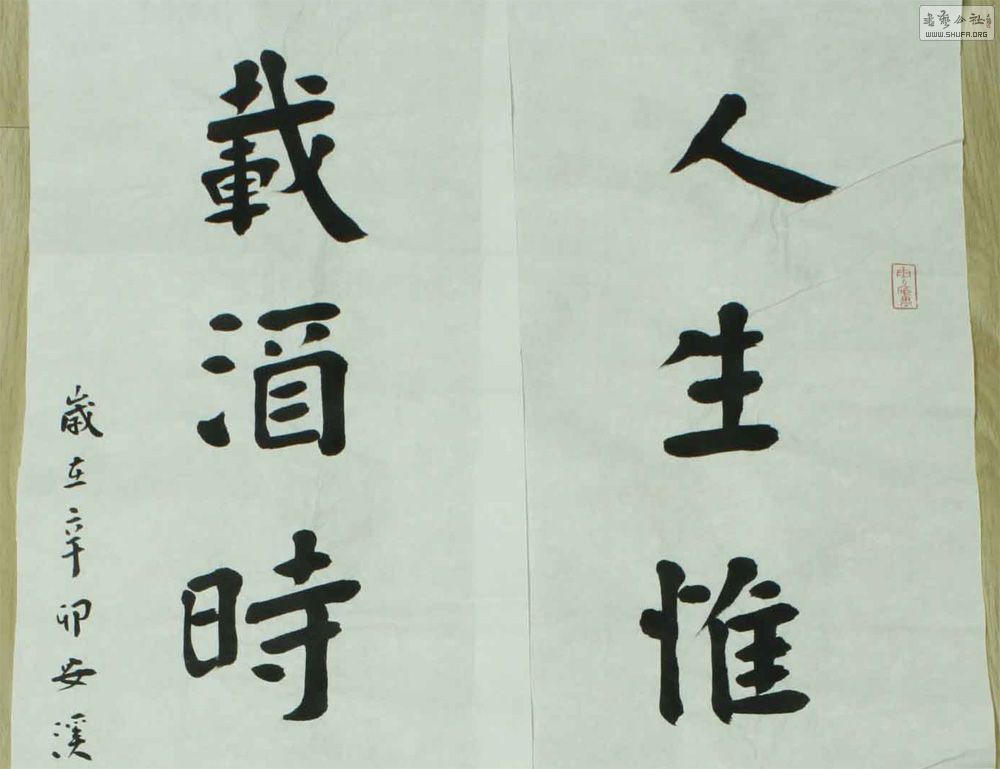 人生惟
載酒時
歲在辛卯安溪
书艺公社
WWW.SHUFA.ORG